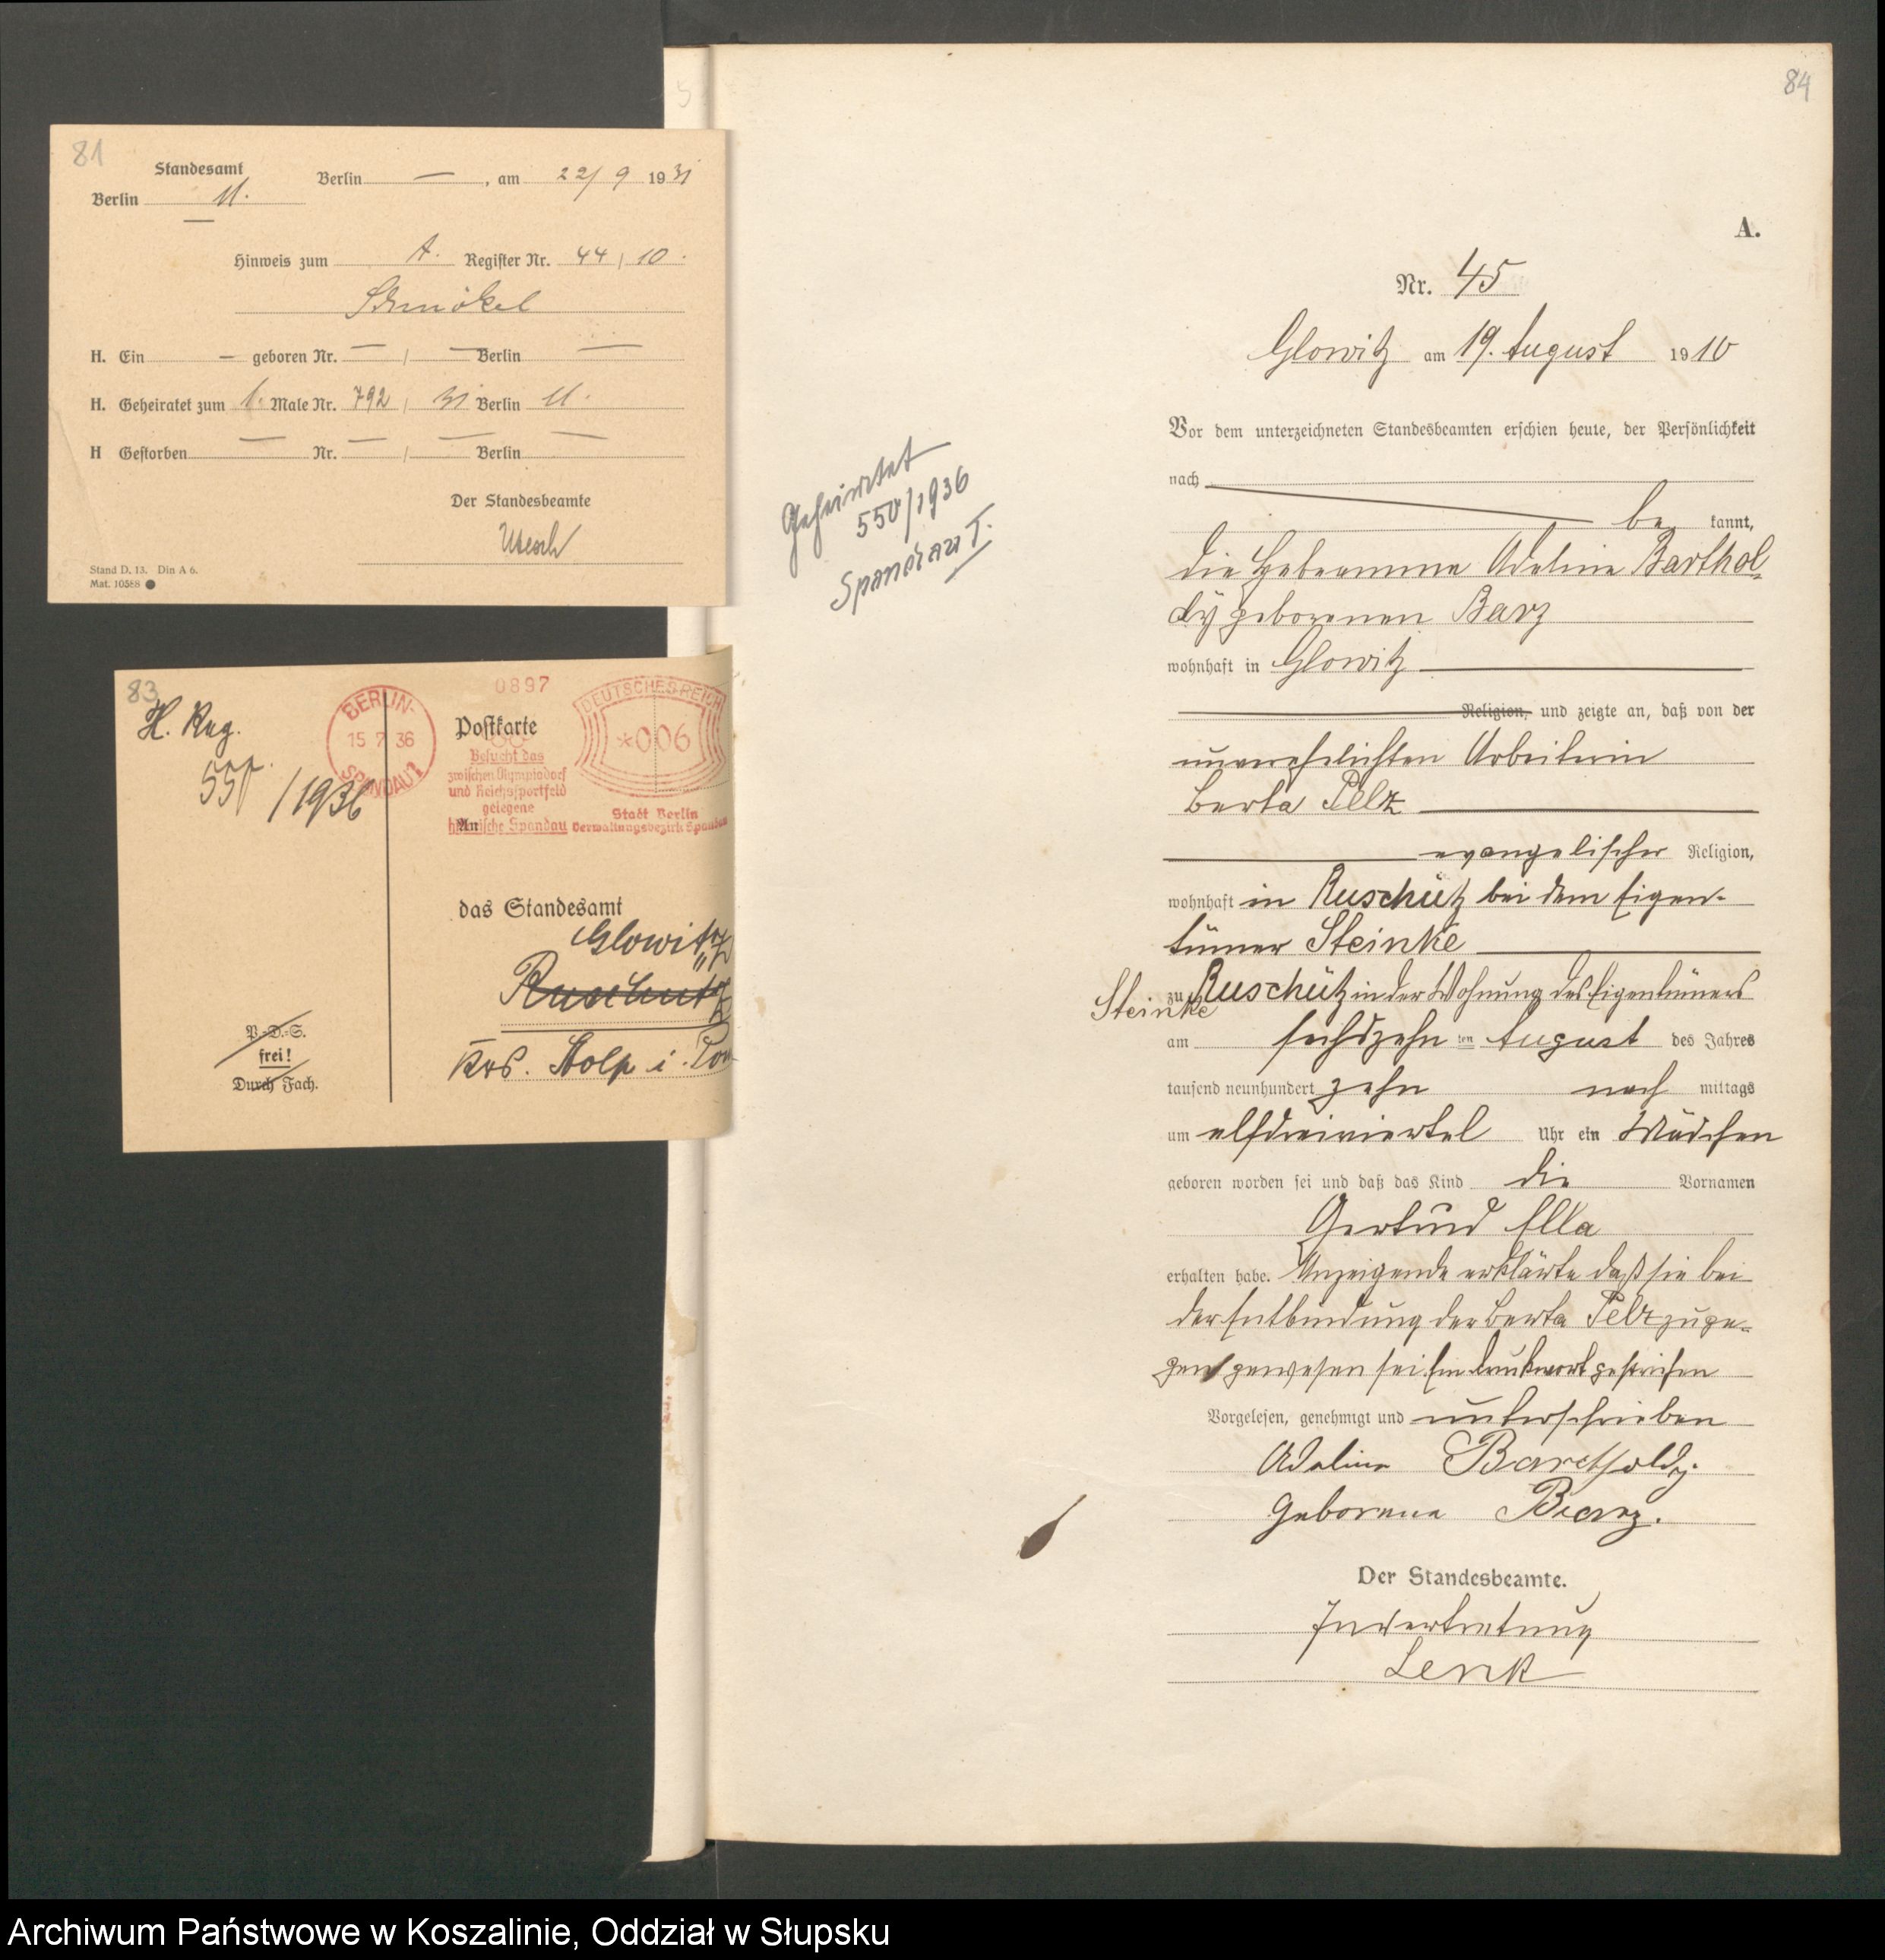 81
Standesamt
Berlin 11.
Berlin — , am 22/9 1931
Hinweis zum A. Register Nr. 44 / 10.
Schmökel
H. Ein — geboren Nr. — / — Berlin —
H. Geheiratet zum 1. Male Nr. 792 / 31 Berlin 11.
H Gestorben — Nr. — / — Berlin —
Der Standesbeamte
Stand D. 13. Din A 6.
Mat. 10588
83
H. Reg.
550/1936
BERLIN-
15 7 36
SPANDAU 1
0897
Postkarte
DEUTSCHES REICH
*006
Besucht das
zwischen Olympiadorf
und Reichssportfeld
gelegene
Spandau
Stadt Berlin
Verwaltungsbezirk Spandau
An
das Standesamt
Glowitz
Ruschütz
Krs. Stolp i. Pom
P.-D.-S.
frei!
Durch Fach.
84
A.
Nr. 45
Glowitz am 19. August 1910
Geheiratet
550/1936
Spandau I.
Vor dem unterzeichneten Standesbeamten erschien heute, der Persönlichkeit
nach
be kannt,
die Hebeamme Adeline Barthol-
dÿ geborenen Barz
wohnhaft in Glowitz
Religion, und zeigte an, daß von der
unverehelichten Arbeiterin
Berta Pelz
evangelischer Religion,
wohnhaft in Ruschütz bei dem Eigen-
tümer Steinke
zu Ruschütz in der Wohnung des Eigentümers
Steinke
am sechszehn ten August des Jahres
tausend neunhundert zehn nach mittags
um elfdreiviertel Uhr ein Mädchen
geboren worden sei und daß das Kind die Vornamen
Gertrud Ella
erhalten habe. Anzeigende erklärte daß sie bei
der Entbindung der Berta Pelz zuge-
gen gewesen sei Ein Druckwort gestrichen
Vorgelesen, genehmigt und unterschrieben
Adeline Bartholdy.
Geborene Barz.
Der Standesbeamte.
In Vertretung
Lenk
Archiwum Państwowe w Koszalinie, Oddział w Słupsku